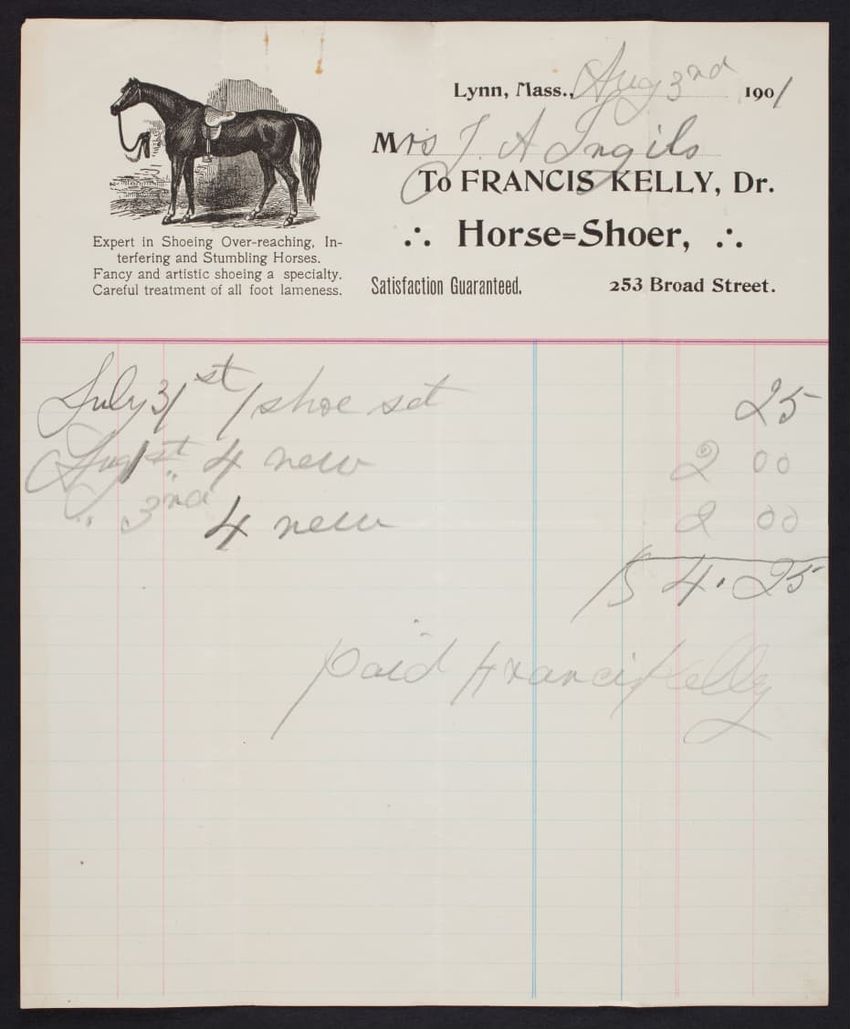 Lynn, Mass., Aug 3nd 1901
Mrs J. A Ingils
To FRANCIS KELLY, Dr.
∴ Horse=Shoer, ∴
Satisfaction Guaranteed. 253 Broad Street.
Expert in Shoeing Over-reaching, In-
terfering and Stumbling Horses.
Fancy and artistic shoeing a specialty.
Careful treatment of all foot lameness.
July 31st 1 shoe set 25
Aug 1st 4 new 2 00
" 3nd 4 new 2 00
$ 4.25
paid Francis Kelly